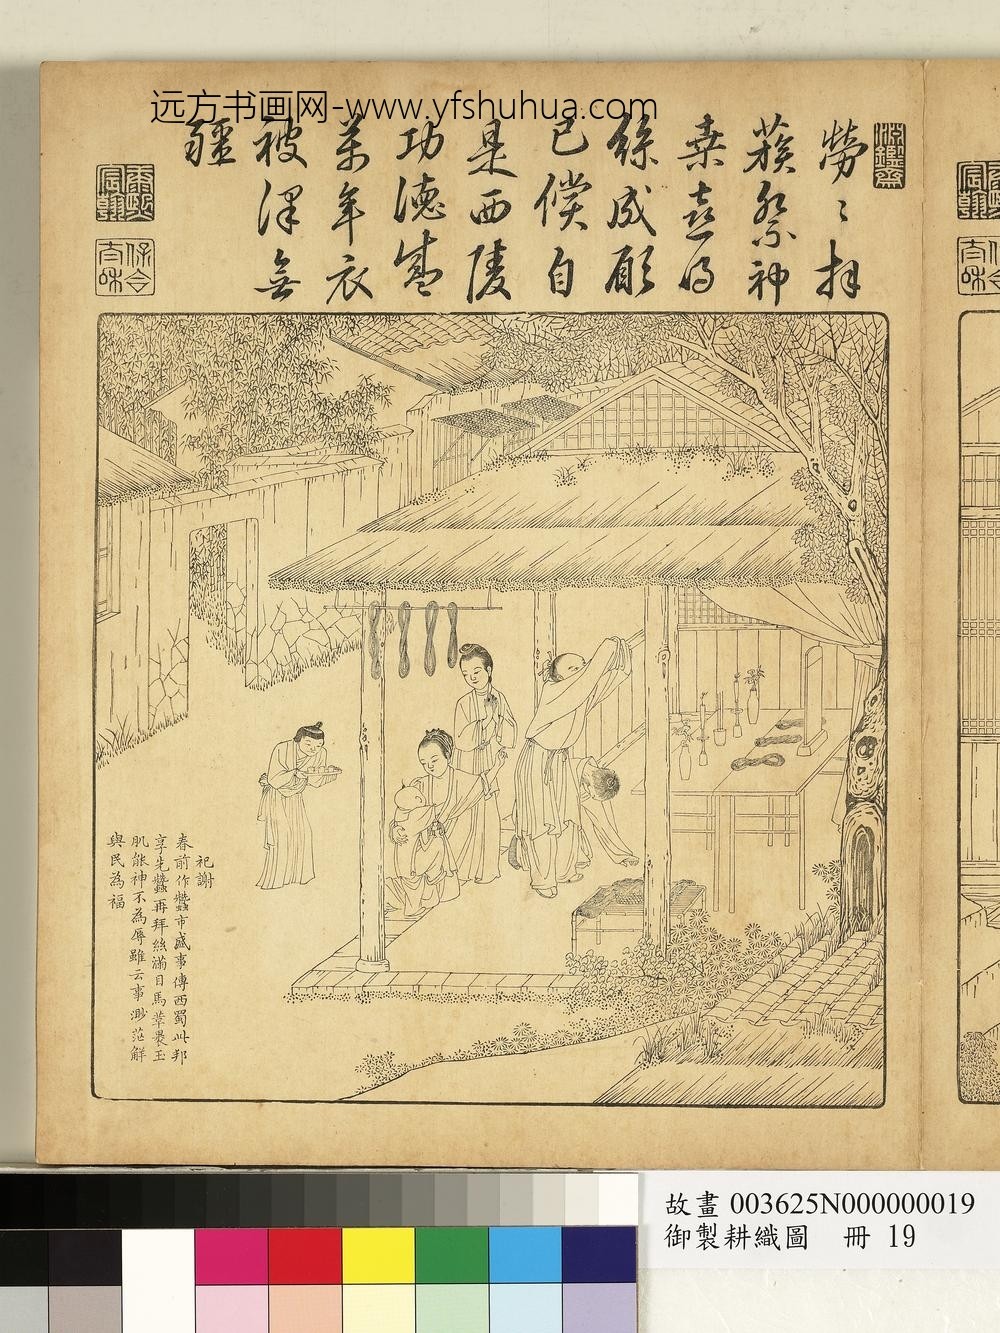 远方书画网-www.yfshuhua.com
淵鑒齋
勞〻拜
簇祭神
桑喜得
絲成願
已償自
是西陵
功德盛
萬年衣
被澤無
疆
康熙宸翰
保合太和
祀謝
春前作蠶市盛事傳西蜀此邦
享先蠶再拜絲滿目馬革裹玉
肌能神不為辱雖云事渺茫解
與民為福
故畫 003625N000000019
御製耕織圖 冊 19